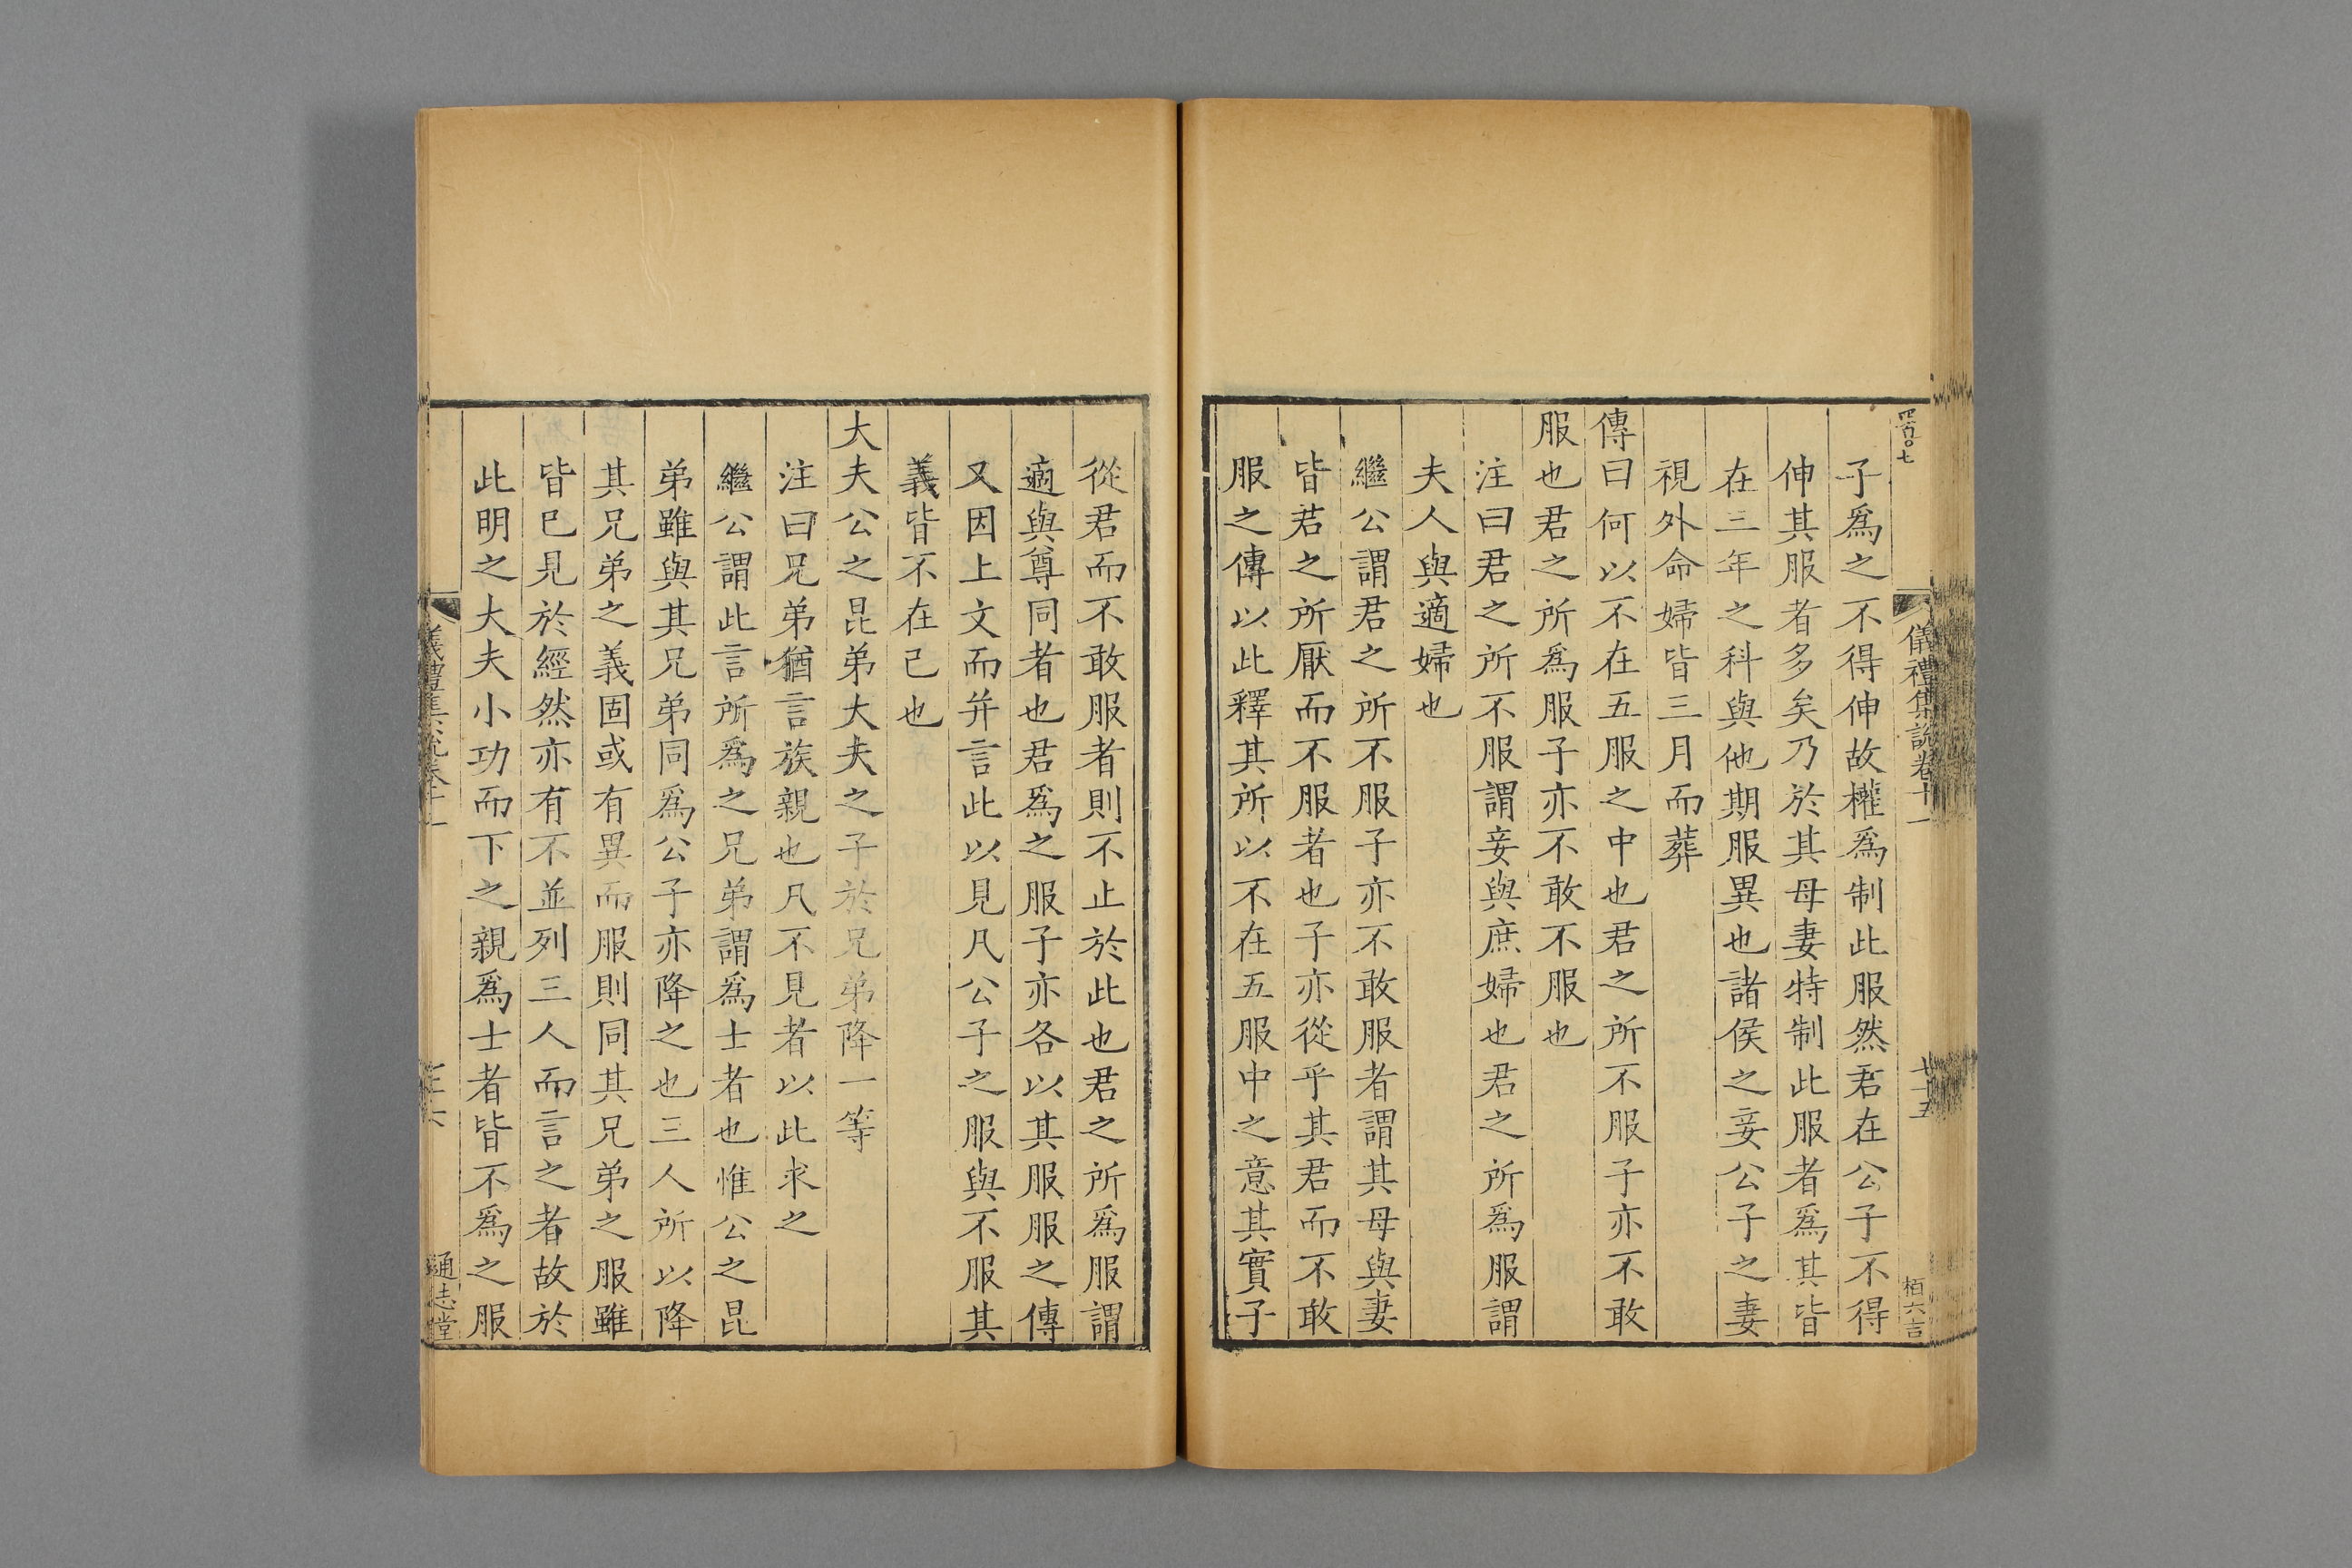 儀禮集說卷十一
子爲之不得伸故權爲制此服然君在公子不得
伸其服者多矣乃於其母妻特制此服者爲其皆
在三年之科與他期服異也諸侯之妾公子之妻
視外命婦皆三月而葬
傳曰何以不在五服之中也君之所不服子亦不敢
服也君之所爲服子亦不敢不服也
注曰君之所不服謂妾與庶婦也君之所爲服謂
夫人與適婦也
繼公謂君之所不服子亦不敢服者謂其母與妻
皆君之所厭而不服者也子亦從乎其君而不敢
服之傳以此釋其所以不在五服中之意其實子
從君而不敢服者則不止於此也君之所爲服謂
適與尊同者也君爲之服子亦各以其服服之傳
又因上文而并言此以見凡公子之服與不服其
義皆不在己也
大夫公之昆弟大夫之子於兄弟降一等
注曰兄弟猶言族親也凡不見者以此求之
繼公謂此言所爲之兄弟謂爲士者也惟公之昆
弟雖與其兄弟同爲公子亦降之也三人所以降
其兄弟之義固或有異而服則同其兄弟之服雖
皆已見於經然亦有不並列三人而言之者故於
此明之大夫小功而下之親爲士者皆不爲之服
儀禮集說卷十一
通志堂